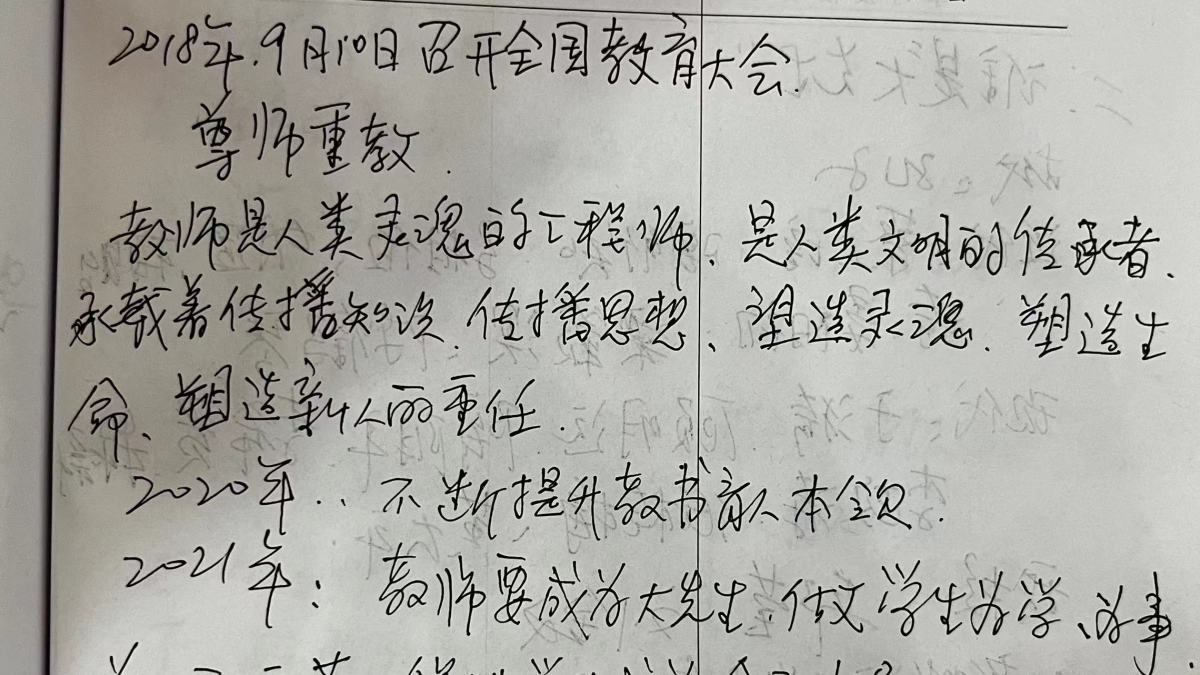 2018年.9月10日召开全国教育大会.
尊师重教.
教师是人类灵魂的工程师、是人类文明的传承者.
承载着传播知识.传播思想、塑造灵魂、塑造生
命、塑造新人的重任.
2020年..不断提升教书育人本领.
2021年：教师要成为大先生.做学生为学、为事.